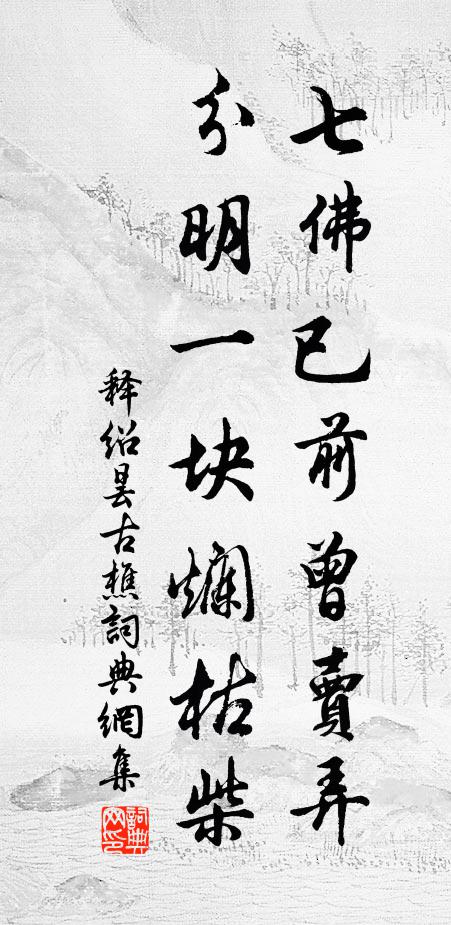 七佛已前曾賣弄
分明一块爛枯柴
释绍昙古樵詞典網集
詞典网印